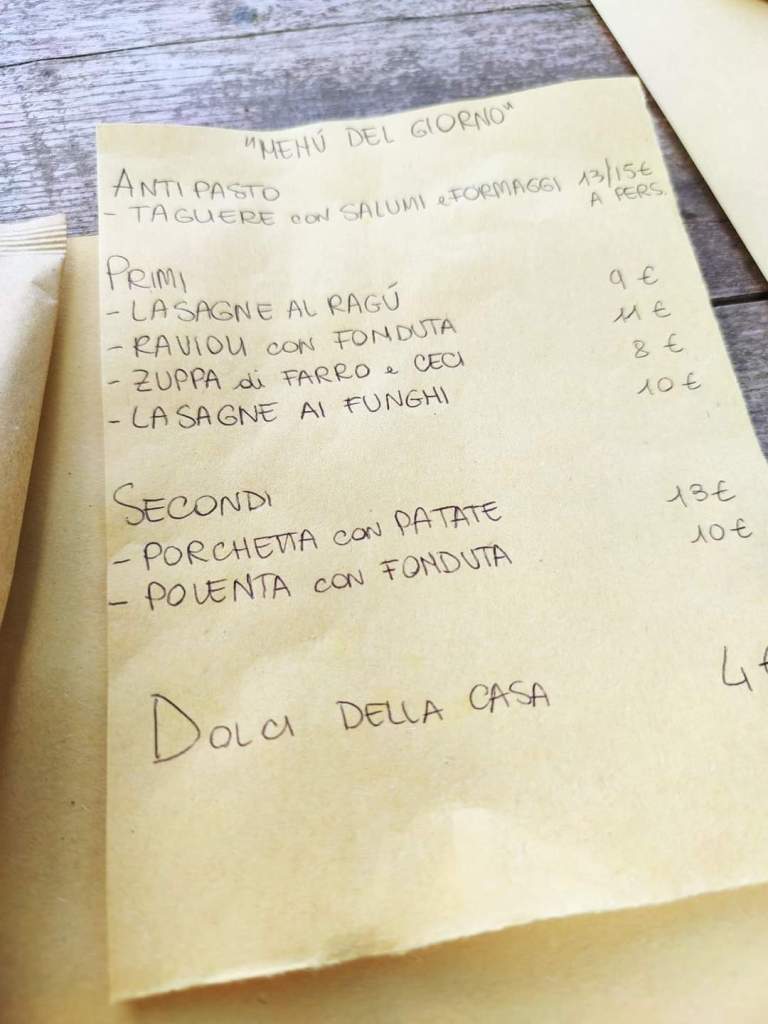 "MENÚ DEL GIORNO"
ANTIPASTO
- TAGLIERE con SALUMI e FORMAGGI 13/15€
A PERS.
PRIMI
- LASAGNE AL RAGÚ 9 €
- RAVIOLI con FONDUTA 11 €
- ZUPPA di FARRO e CECI 8 €
- LASAGNE AI FUNGHI 10 €
SECONDI
- PORCHETTA con PATATE 13€
- POLENTA con FONDUTA 10€
DOLCI DELLA CASA 4€